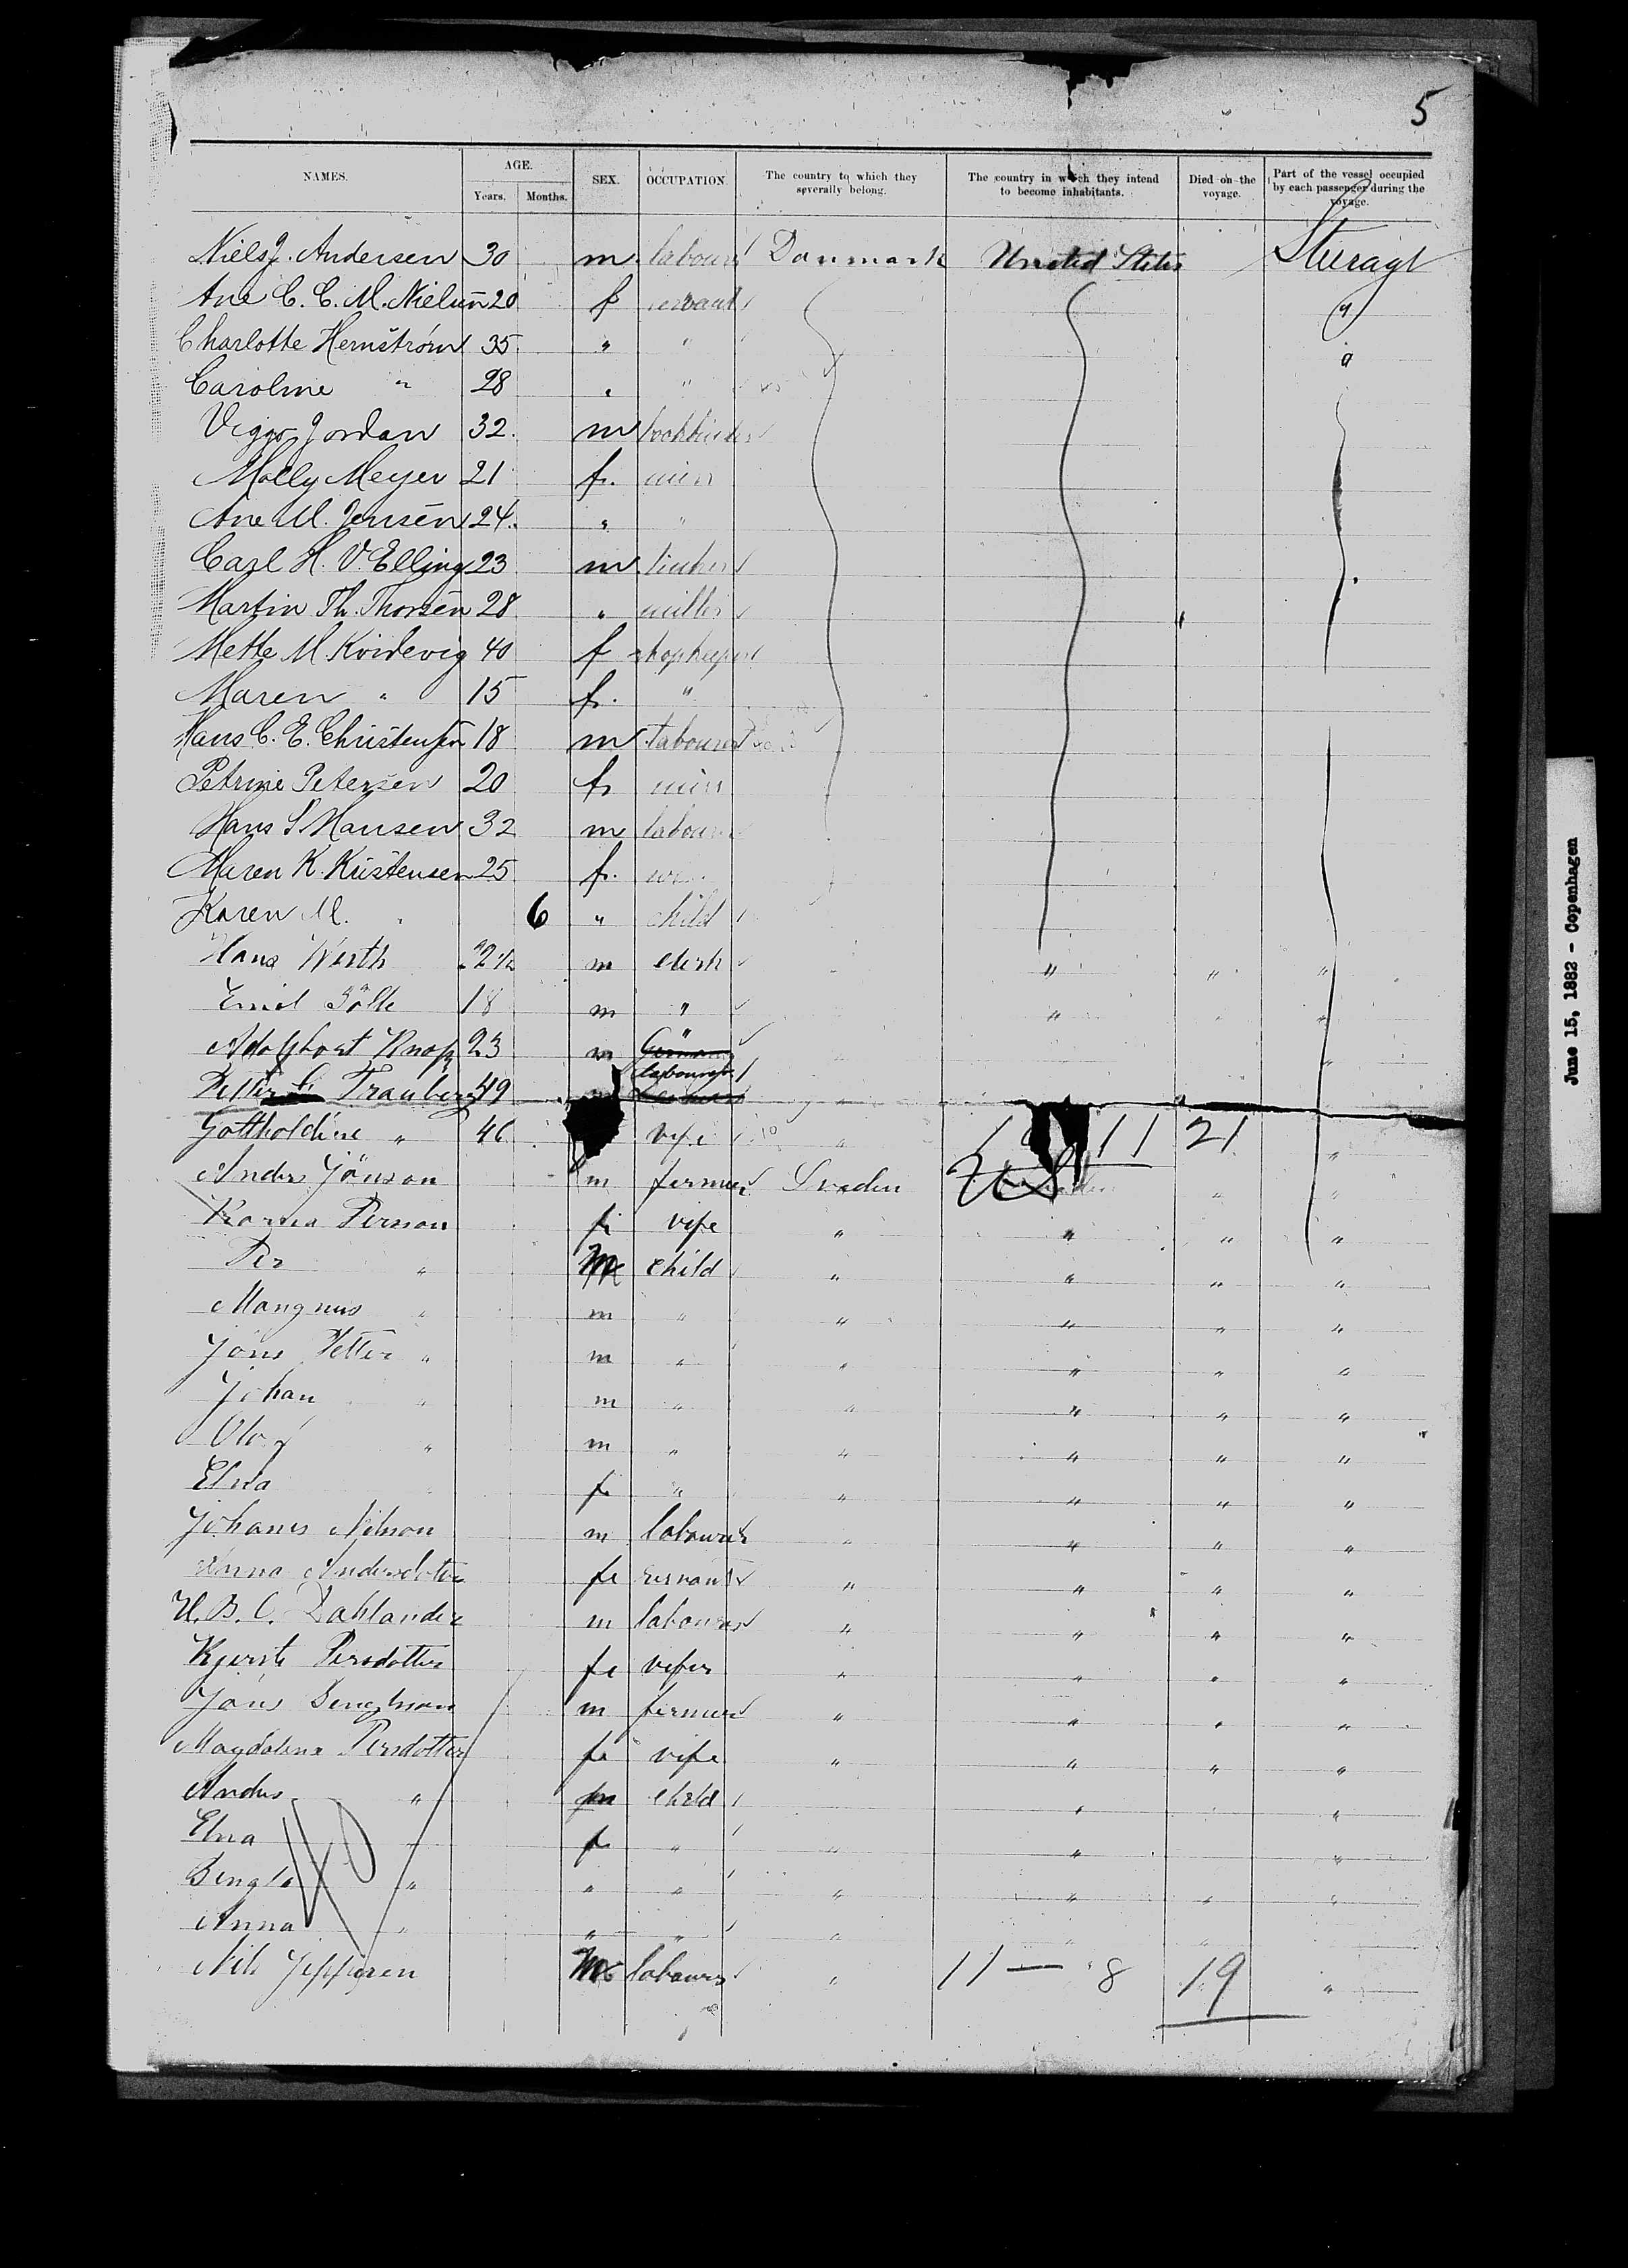 5
NAMES. AGE. Years. Months. SEX. OCCUPATION. The country to which they severally belong. The country in which they intend to become inhabitants. Died on the voyage. Part of the vessel occupied by each passenger during the voyage.
Niels J. Andersen 30 m labourer Danmark United States Steerage
Ane C. C. M. Nielsen 20 f servant "
Charlotte Hernström 35 " "
Caroline " 28 " "
Viggo Jordan 32. m bookbinder
Molly Meyer 21 f. miss
Ane M. Jensen 24. " "
Carl H. V. Elling 23 m
Martin Th. Thorsen 28 " miller
Mette M. Kvidevig 40 f shopkeeper
Maren " 15 f. "
Hans C. E. Christensen 18 m labourer
Petrine Petersen 20 f. miss
Hans S Hansen 32 m labourer
Maren K. Kristensen 25 f.
Karen M. " 6 " child
Hans Werth 22 1/2 m clerk " " "
Emil 18 m " " " "
Knop 23 m "
Petter Trauberg 49 m labourer "
Gottholdine " 46 vife " 11 21 "
Anders Jönson m fermer Sveden " "
Karna Person fe vife " " " "
Per " m child " " " "
Mangnus " m " " " " "
Jöns Petter " m " " " " "
Johan " m " " " " "
Olof " m " " " " "
Elna fe " " " " "
Johanes Nilson m labourer " " " "
Anna Andersdotter fe servant " " " "
H. B. C. Dahlander m labourer " " " "
Kjersti Persdotter fe vifer " " " "
Jöns Bengtson m fermer " " " "
Magdalena Persdotter fe vife " " " "
Anders " m child " "
Elna " fe " " " "
Bengta " " " " " " "
Anna " " " " " "
Nils Jeppsen m labourer " 11 — 8 19 "
40
June 15, 1882 - Copenhagen